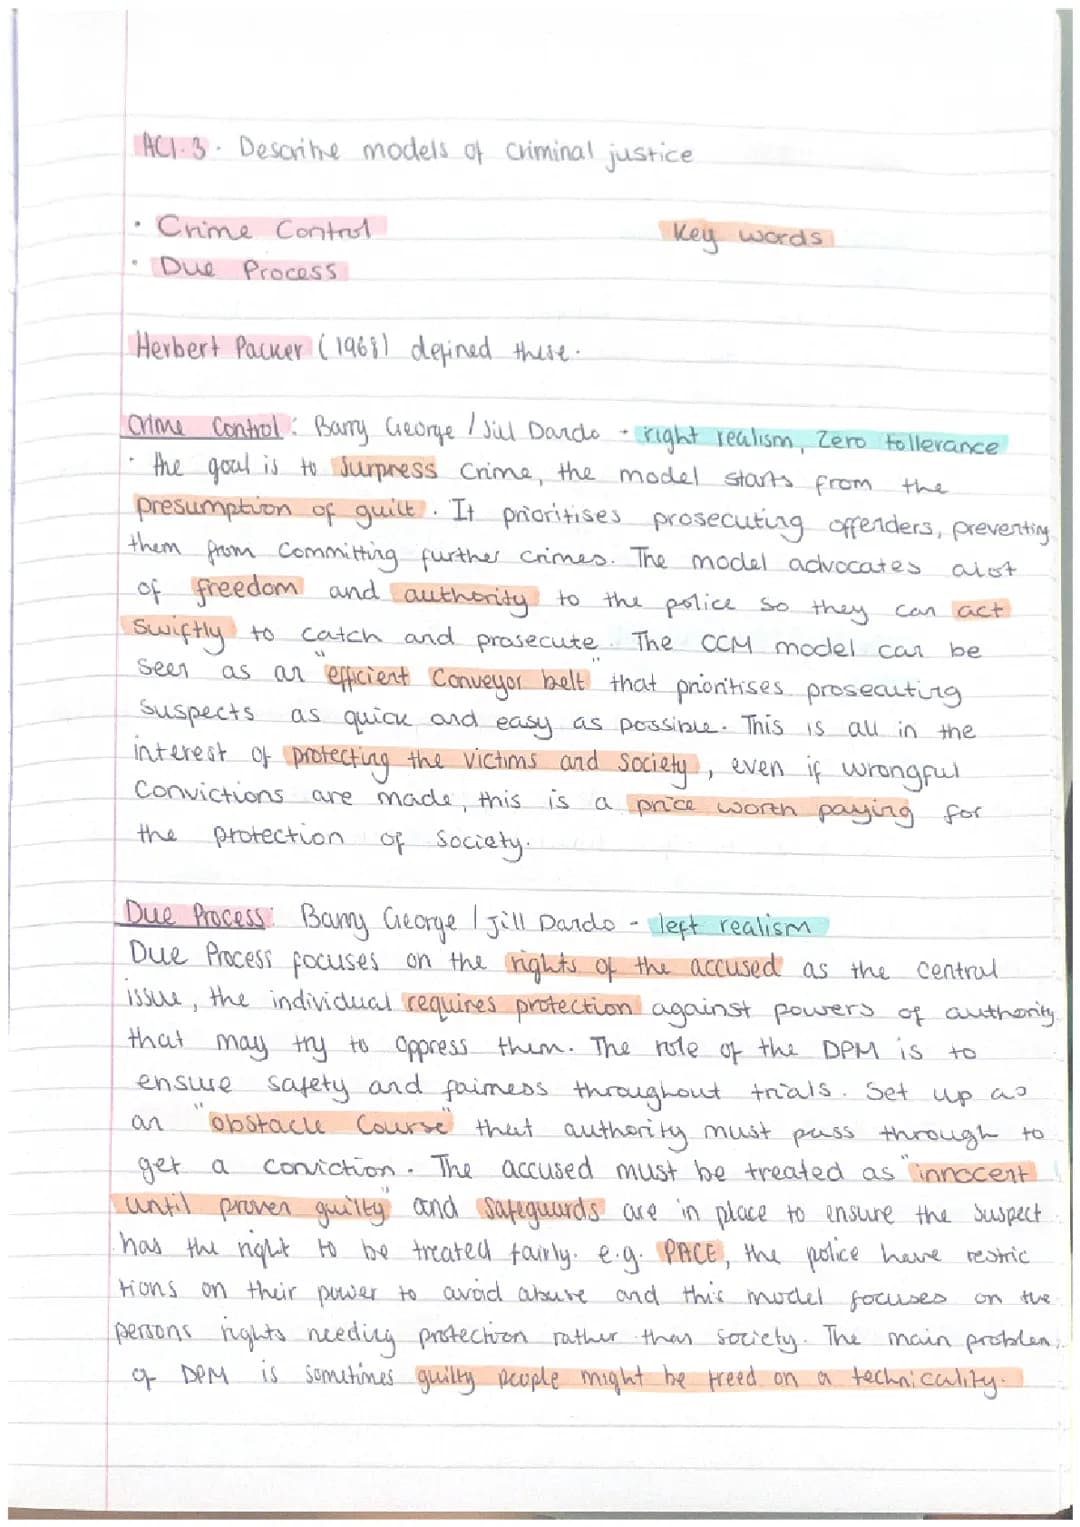 AC1.3. Describe models of criminal justice
• Crime Control
Key words
• Due Process
Herbert Packer (1968) defined these.
Crime Control: Barry George / Jill Dando - right realism, Zero tollerance
• the goal is to surpress crime, the model starts from the
presumption of guilt. It prioritises prosecuting offenders, preventing
them from committing further crimes. The model advocates alot
of freedom and authority to the police so they can act
swiftly to catch and prosecute. The CCM model can be
seen as an "efficient conveyor belt" that prioritises prosecuting
suspects as quick and easy as possible. This is all in the
interest of protecting the victims and society, even if wrongful
convictions are made, this is a price worth paying for
the protection of society.
Due Process: Barry George / Jill Dando - left realism
Due Process focuses on the rights of the accused as the central
issue, the individual requires protection against powers of authority
that may try to oppress them. The role of the DPM is to
ensure safety and fairness throughout trials. Set up as
an "obstacle course" that authority must pass through to
get a conviction. The accused must be treated as "innocent
until proven guilty" and safeguards are in place to ensure the suspect
has the right to be treated fairly. e.g. PACE, the police have restric
tions on their power to avoid abuse and this model focuses on the
persons rights needing protection rather than society. The main problem
of DPM is sometimes guilty people might be freed on a technicality.